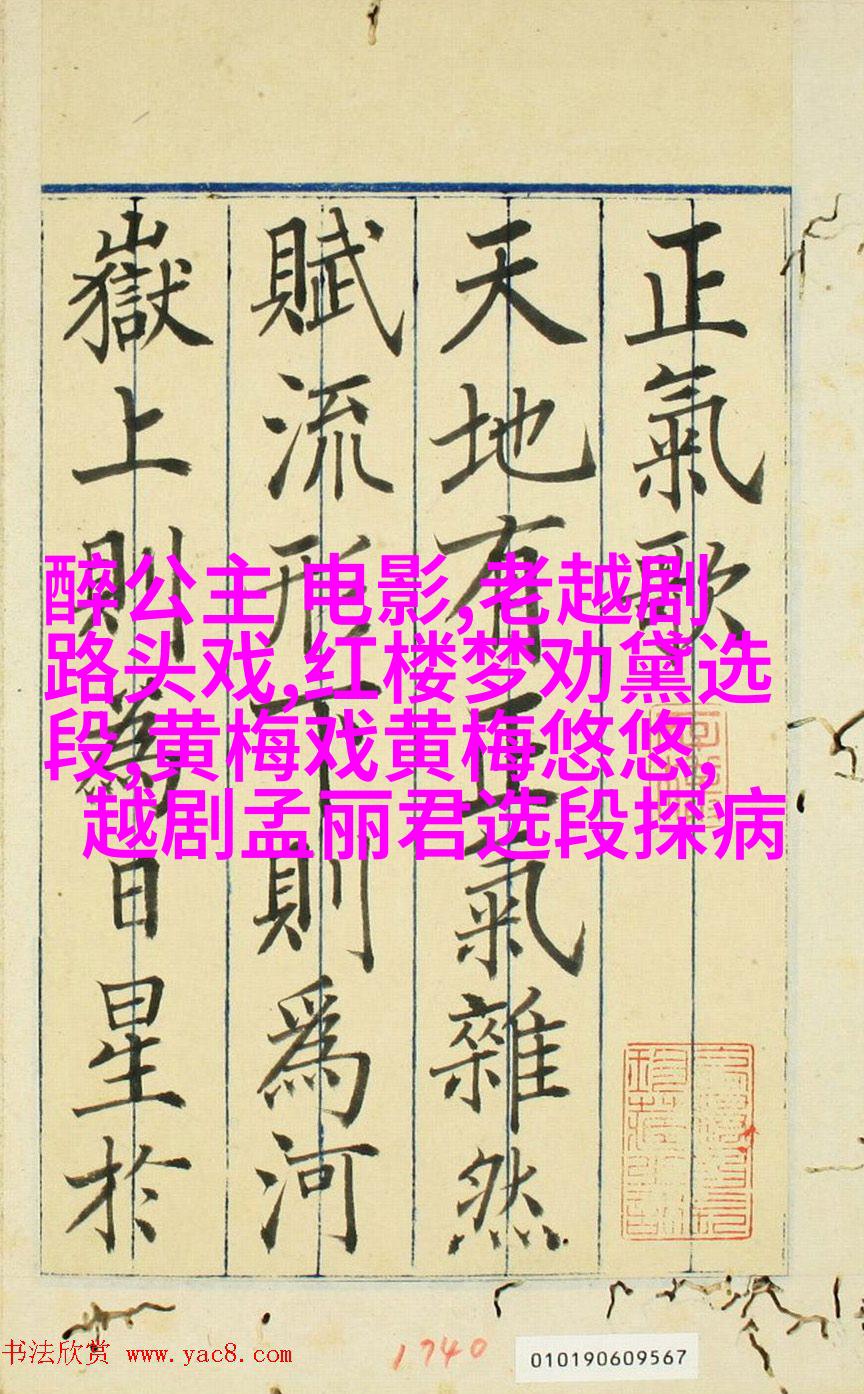 正氣歌
天地有正氣雜然
賦流形下則爲河
嶽上則爲日星於
醉公主 电影,老越剧
路头戏,红楼梦劝黛选
段,黄梅戏黄梅悠悠,
越剧孟丽君选段探病
书法欣赏 www.yac8.com
1740
010190609567